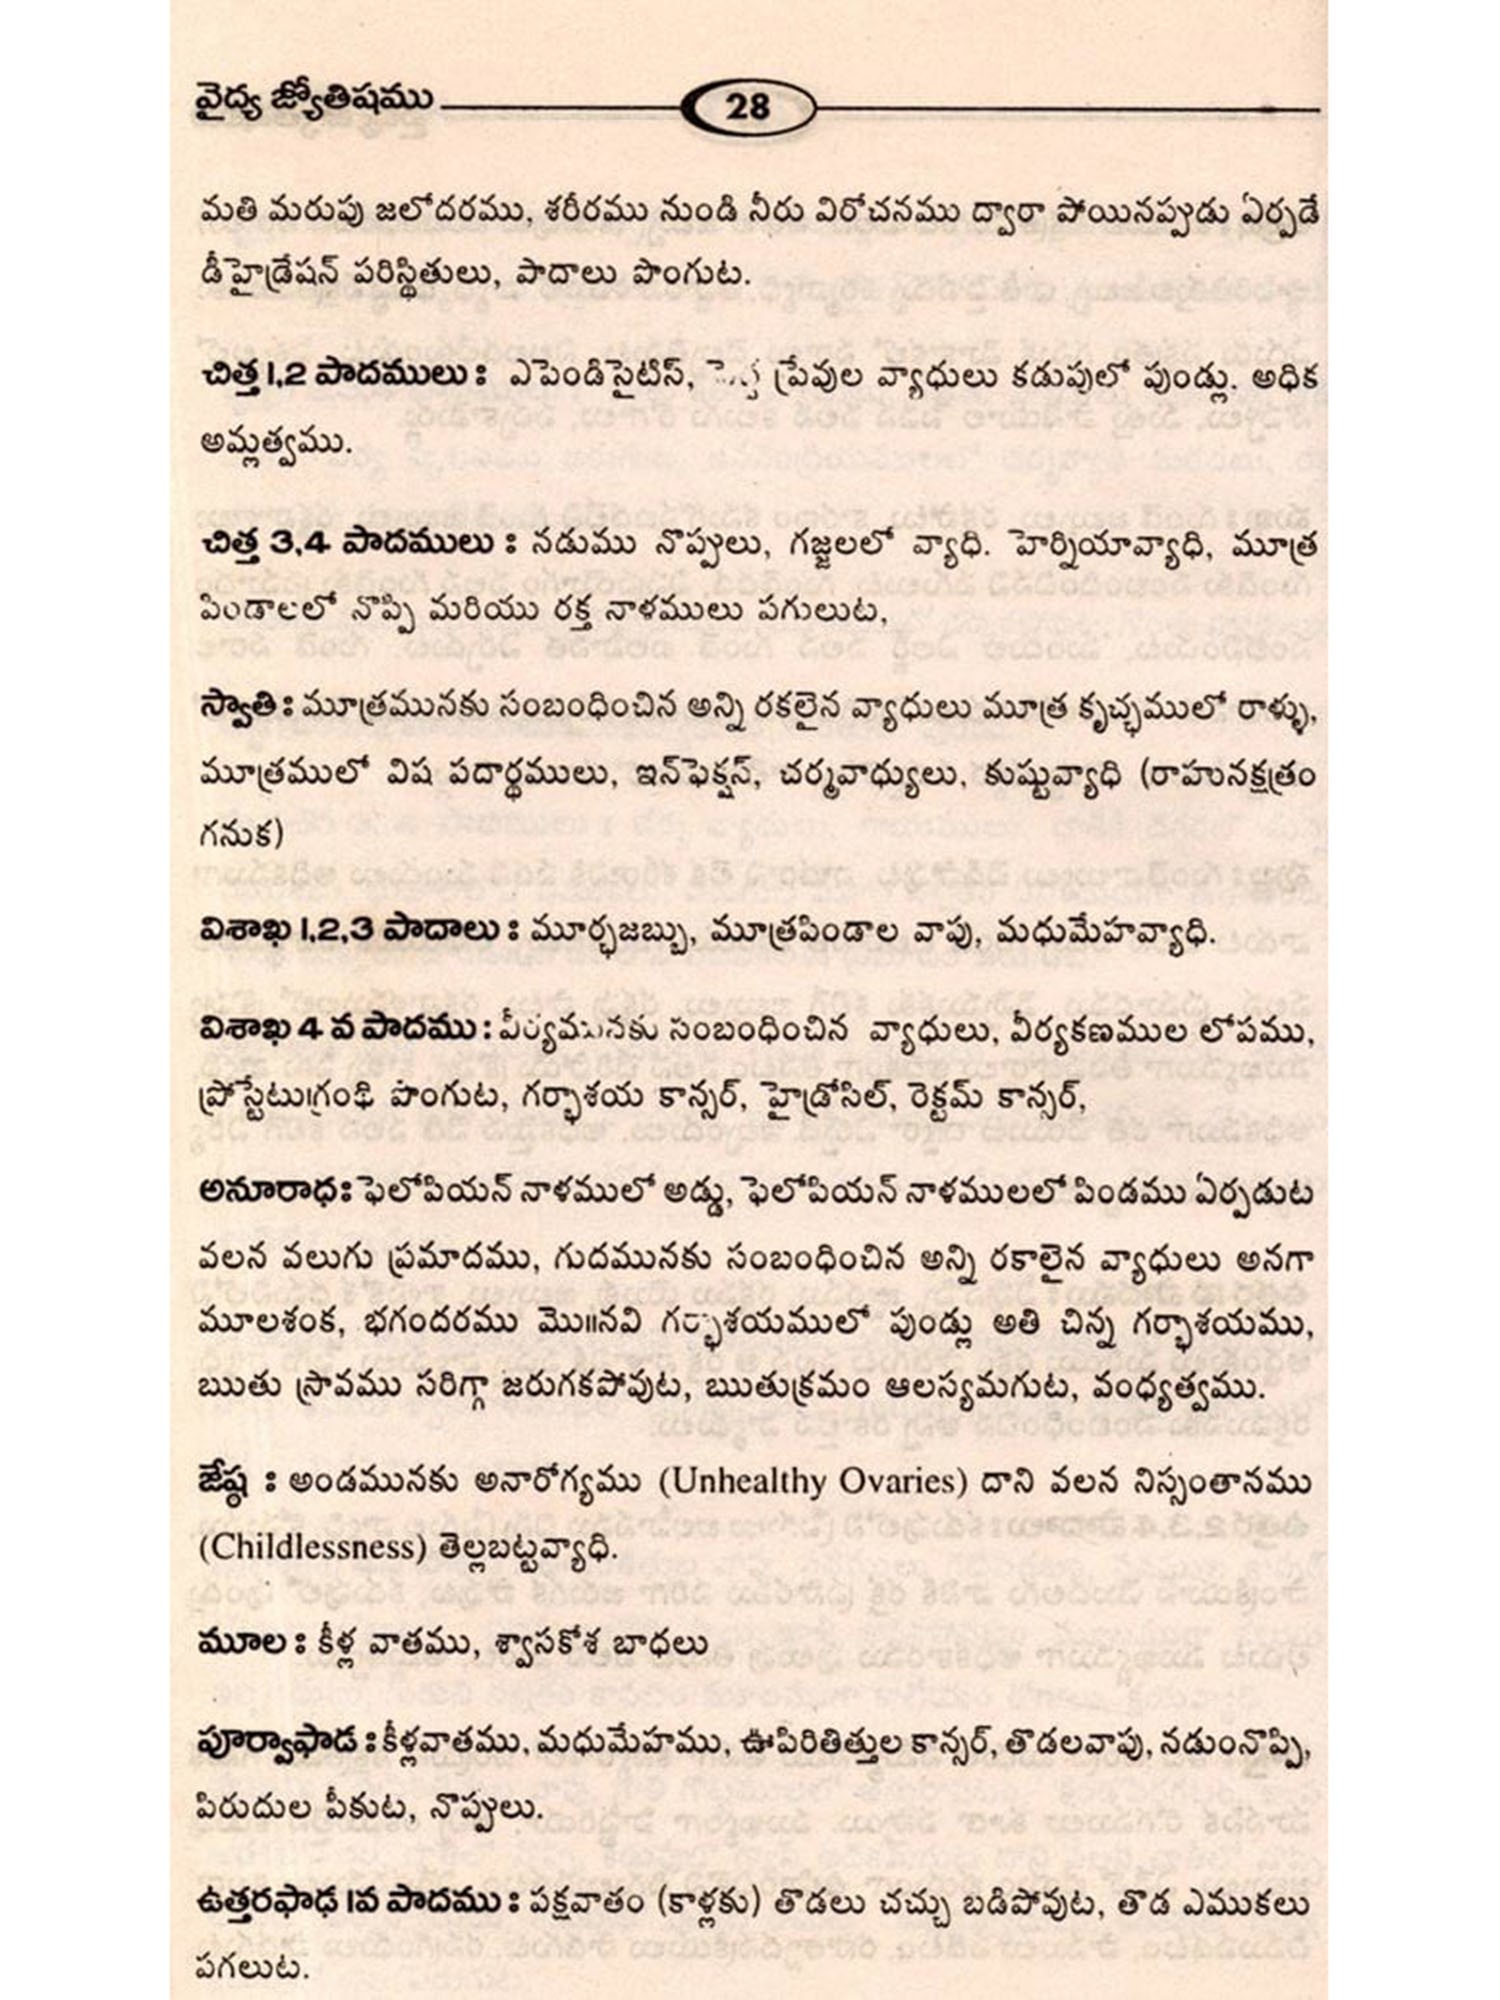 వైద్య జ్యోతిషము
28
మతి మరుపు జలోదరము, శరీరము నుండి నీరు విరోచనము ద్వారా పోయినప్పుడు ఏర్పడే
డీహైడ్రేషన్ పరిస్థితులు, పాదాలు పొంగుట.
చిత్త 1,2 పాదములు : ఎపెండిసైటిస్, ప్రేవుల వ్యాధులు కడుపులో పుండ్లు. అధిక
అమ్లత్వము.
చిత్త 3,4 పాదములు : నడుము నొప్పులు, గజ్జలలో వ్యాధి. హెర్నియావ్యాధి, మూత్ర
పిండాలలో నొప్పి మరియు రక్త నాళములు పగులుట,
స్వాతి : మూత్రమునకు సంబంధించిన అన్ని రకలైన వ్యాధులు మూత్ర కృచ్ఛములో రాళ్ళు,
మూత్రములో విష పదార్థములు, ఇన్‌ఫెక్షన్, చర్మవాధ్యులు, కుష్టువ్యాధి (రాహునక్షత్రం
గనుక)
విశాఖ 1,2,3 పాదాలు : మూర్ఛజబ్బు, మూత్రపిండాల వాపు, మధుమేహవ్యాధి.
విశాఖ 4 వ పాదము : వీర్యమునకు సంబంధించిన వ్యాధులు, వీర్యకణముల లోపము,
ప్రోస్టేటుగ్రంథి పొంగుట, గర్భాశయ కాన్సర్, హైడ్రోసిల్, రెక్టమ్ కాన్సర్,
అనూరాధ : ఫెలోపియన్ నాళములో అడ్డు, ఫెలోపియన్ నాళములలో పిండము ఏర్పడుట
వలన వలుగు ప్రమాదము, గుదమునకు సంబంధించిన అన్ని రకాలైన వ్యాధులు అనగా
మూలశంక, భగందరము మొ॥నవి గర్భాశయములో పుండ్లు అతి చిన్న గర్భాశయము,
ఋతు స్రావము సరిగ్గా జరుగకపోవుట, ఋతుక్రమం ఆలస్యమగుట, వంధ్యత్వము.
జేష్ఠ : అండమునకు అనారోగ్యము (Unhealthy Ovaries) దాని వలన నిస్సంతానము
(Childlessness) తెల్లబట్టవ్యాధి.
మూల : కీళ్ల వాతము, శ్వాసకోశ బాధలు
పూర్వాషాడ : కీళ్లవాతము, మధుమేహము, ఊపిరితిత్తుల కాన్సర్, తొడలవాపు, నడుంనొప్పి,
పిరుదుల పీకుట, నొప్పులు.
ఉత్తరషాఢ 1వ పాదము : పక్షవాతం (కాళ్లకు) తొడలు చచ్చు బడిపోవుట, తొడ ఎముకలు
పగలుట.